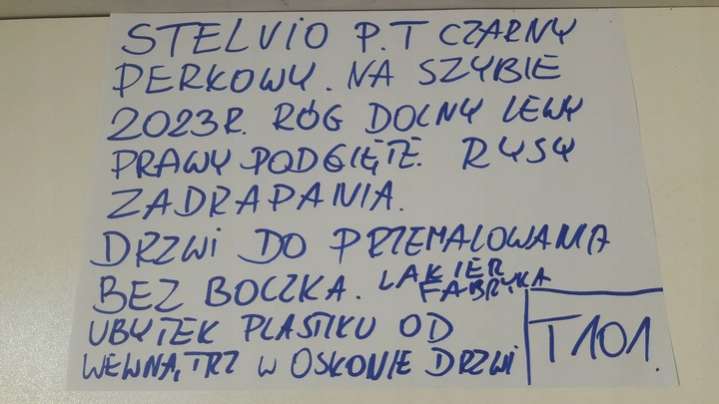 STELVIO P.T CZARNY
PERKOWY. NA SZYBIE
2023R. RÓG DOLNY LEWY
PRAWY PODGIĘTE. RYSY
ZADRAPANIA.
DRZWI DO PRZEMALOWANIA
BEZ BOCZKA. LAKIER
FABRYKA
UBYTEK PLASTIKU OD
WEWNĄTRZ W OSŁONIE DRZWI
T101.